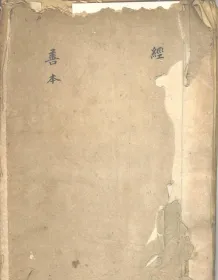 經
善本